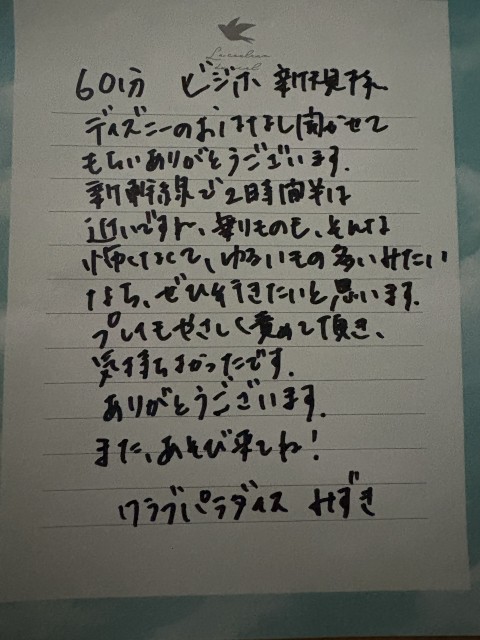 60分 ビジホ 新規様
ディズニーのおはなし聞かせて
もらいありがとうございます.
新幹線で2時間半は
近いですね、乗りものも、そんな
怖くなくて、ゆるいもの多いみたい
なら、ぜひ行きたいと思います.
プレイもやさしく責めて頂き、
気持ちよかったです.
ありがとうございます.
また、あそび来てね!
クラブパラダイス みずき